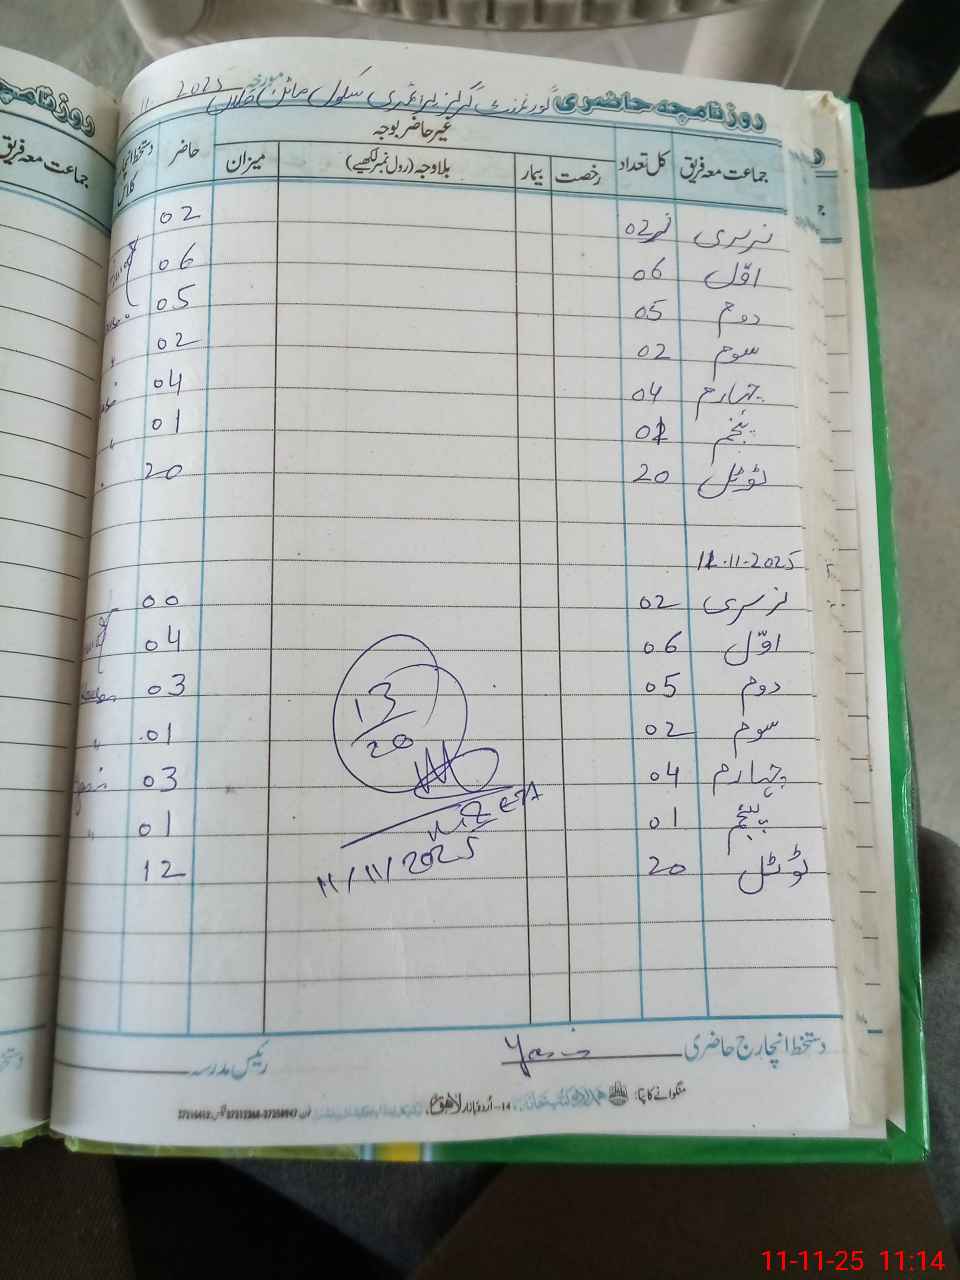 روزنامچہ حاضری گورنمنٹ گرلز پرائمری سکول مورخہ 2025
جماعت معہ فریق کل تعداد غیر حاضر بوجہ حاضر دستخط انچارج کلاس
رخصت بیمار بلاوجہ (رول نمبر لکھیے) میزان
نرسری 02 02
اوّل 06 06
دوم 05 05
سوم 02 02
چہارم 04 04
پنجم 01 01
ٹوٹل 20 20
11.11.2025
نرسری 02 00
اوّل 06 04
دوم 05 03
سوم 02 01
چہارم 04 03
پنجم 01 01
ٹوٹل 20 12
13/20
11/11/2025
دستخط انچارج حاضری رئیس مدرسہ
منگوانے کا پتا: 14-اُردو بازار لاہور
روزنامچہ
جماعت معہ فریق
11-11-25 11:14